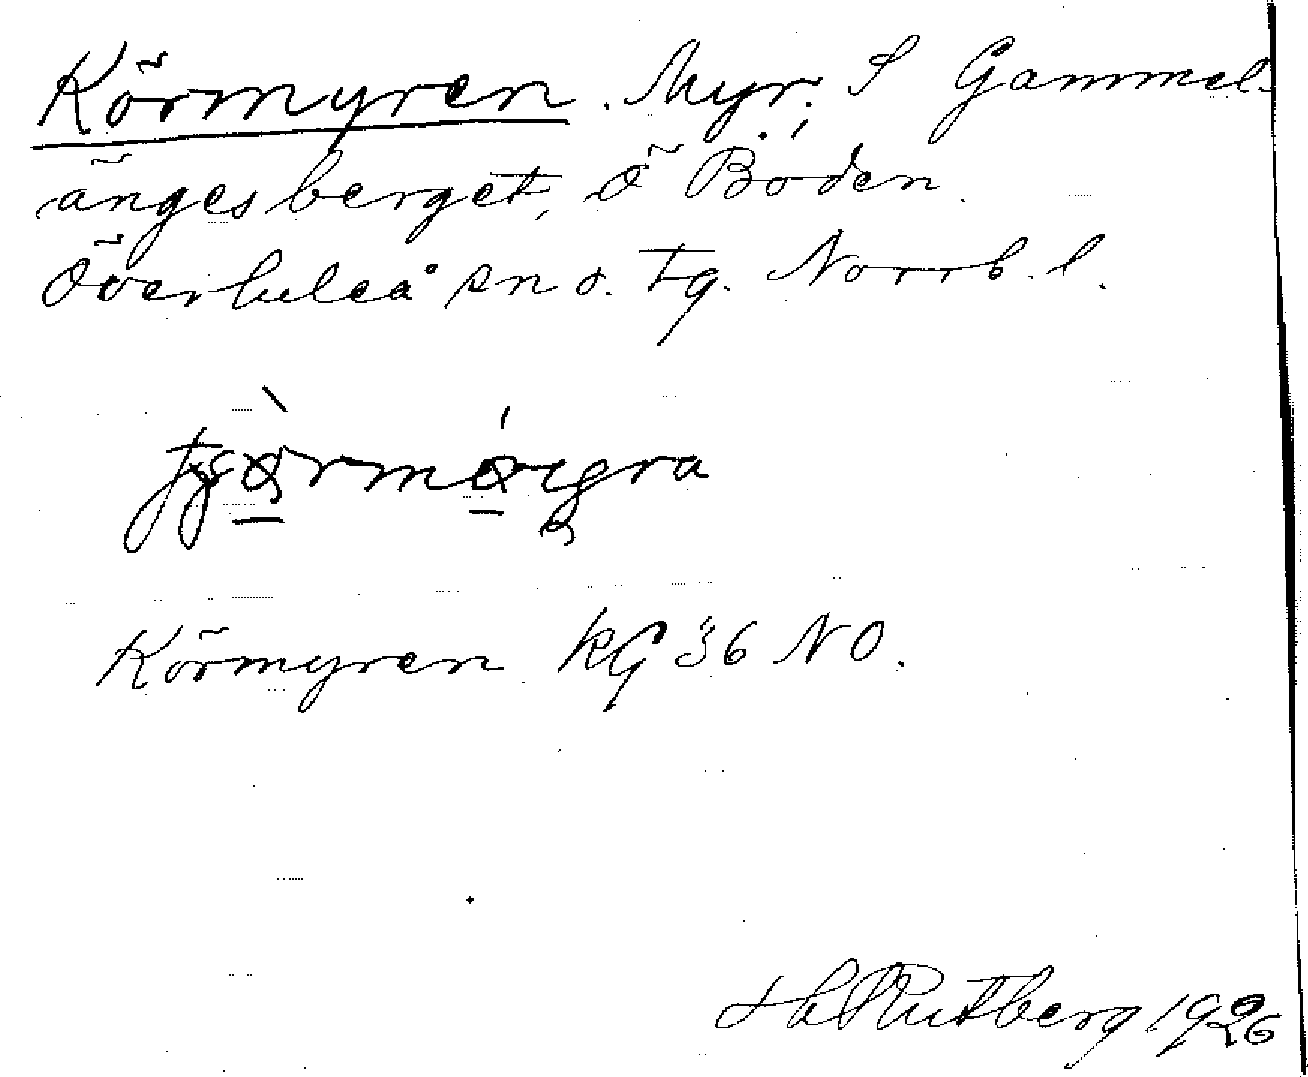 Körmyren. Myr. S Gammel-
ängesberget, Ö Boden.
Överluleå sn o. tg. Norrb. l.
Körmyren KG 36 NO.
Rutberg 1926